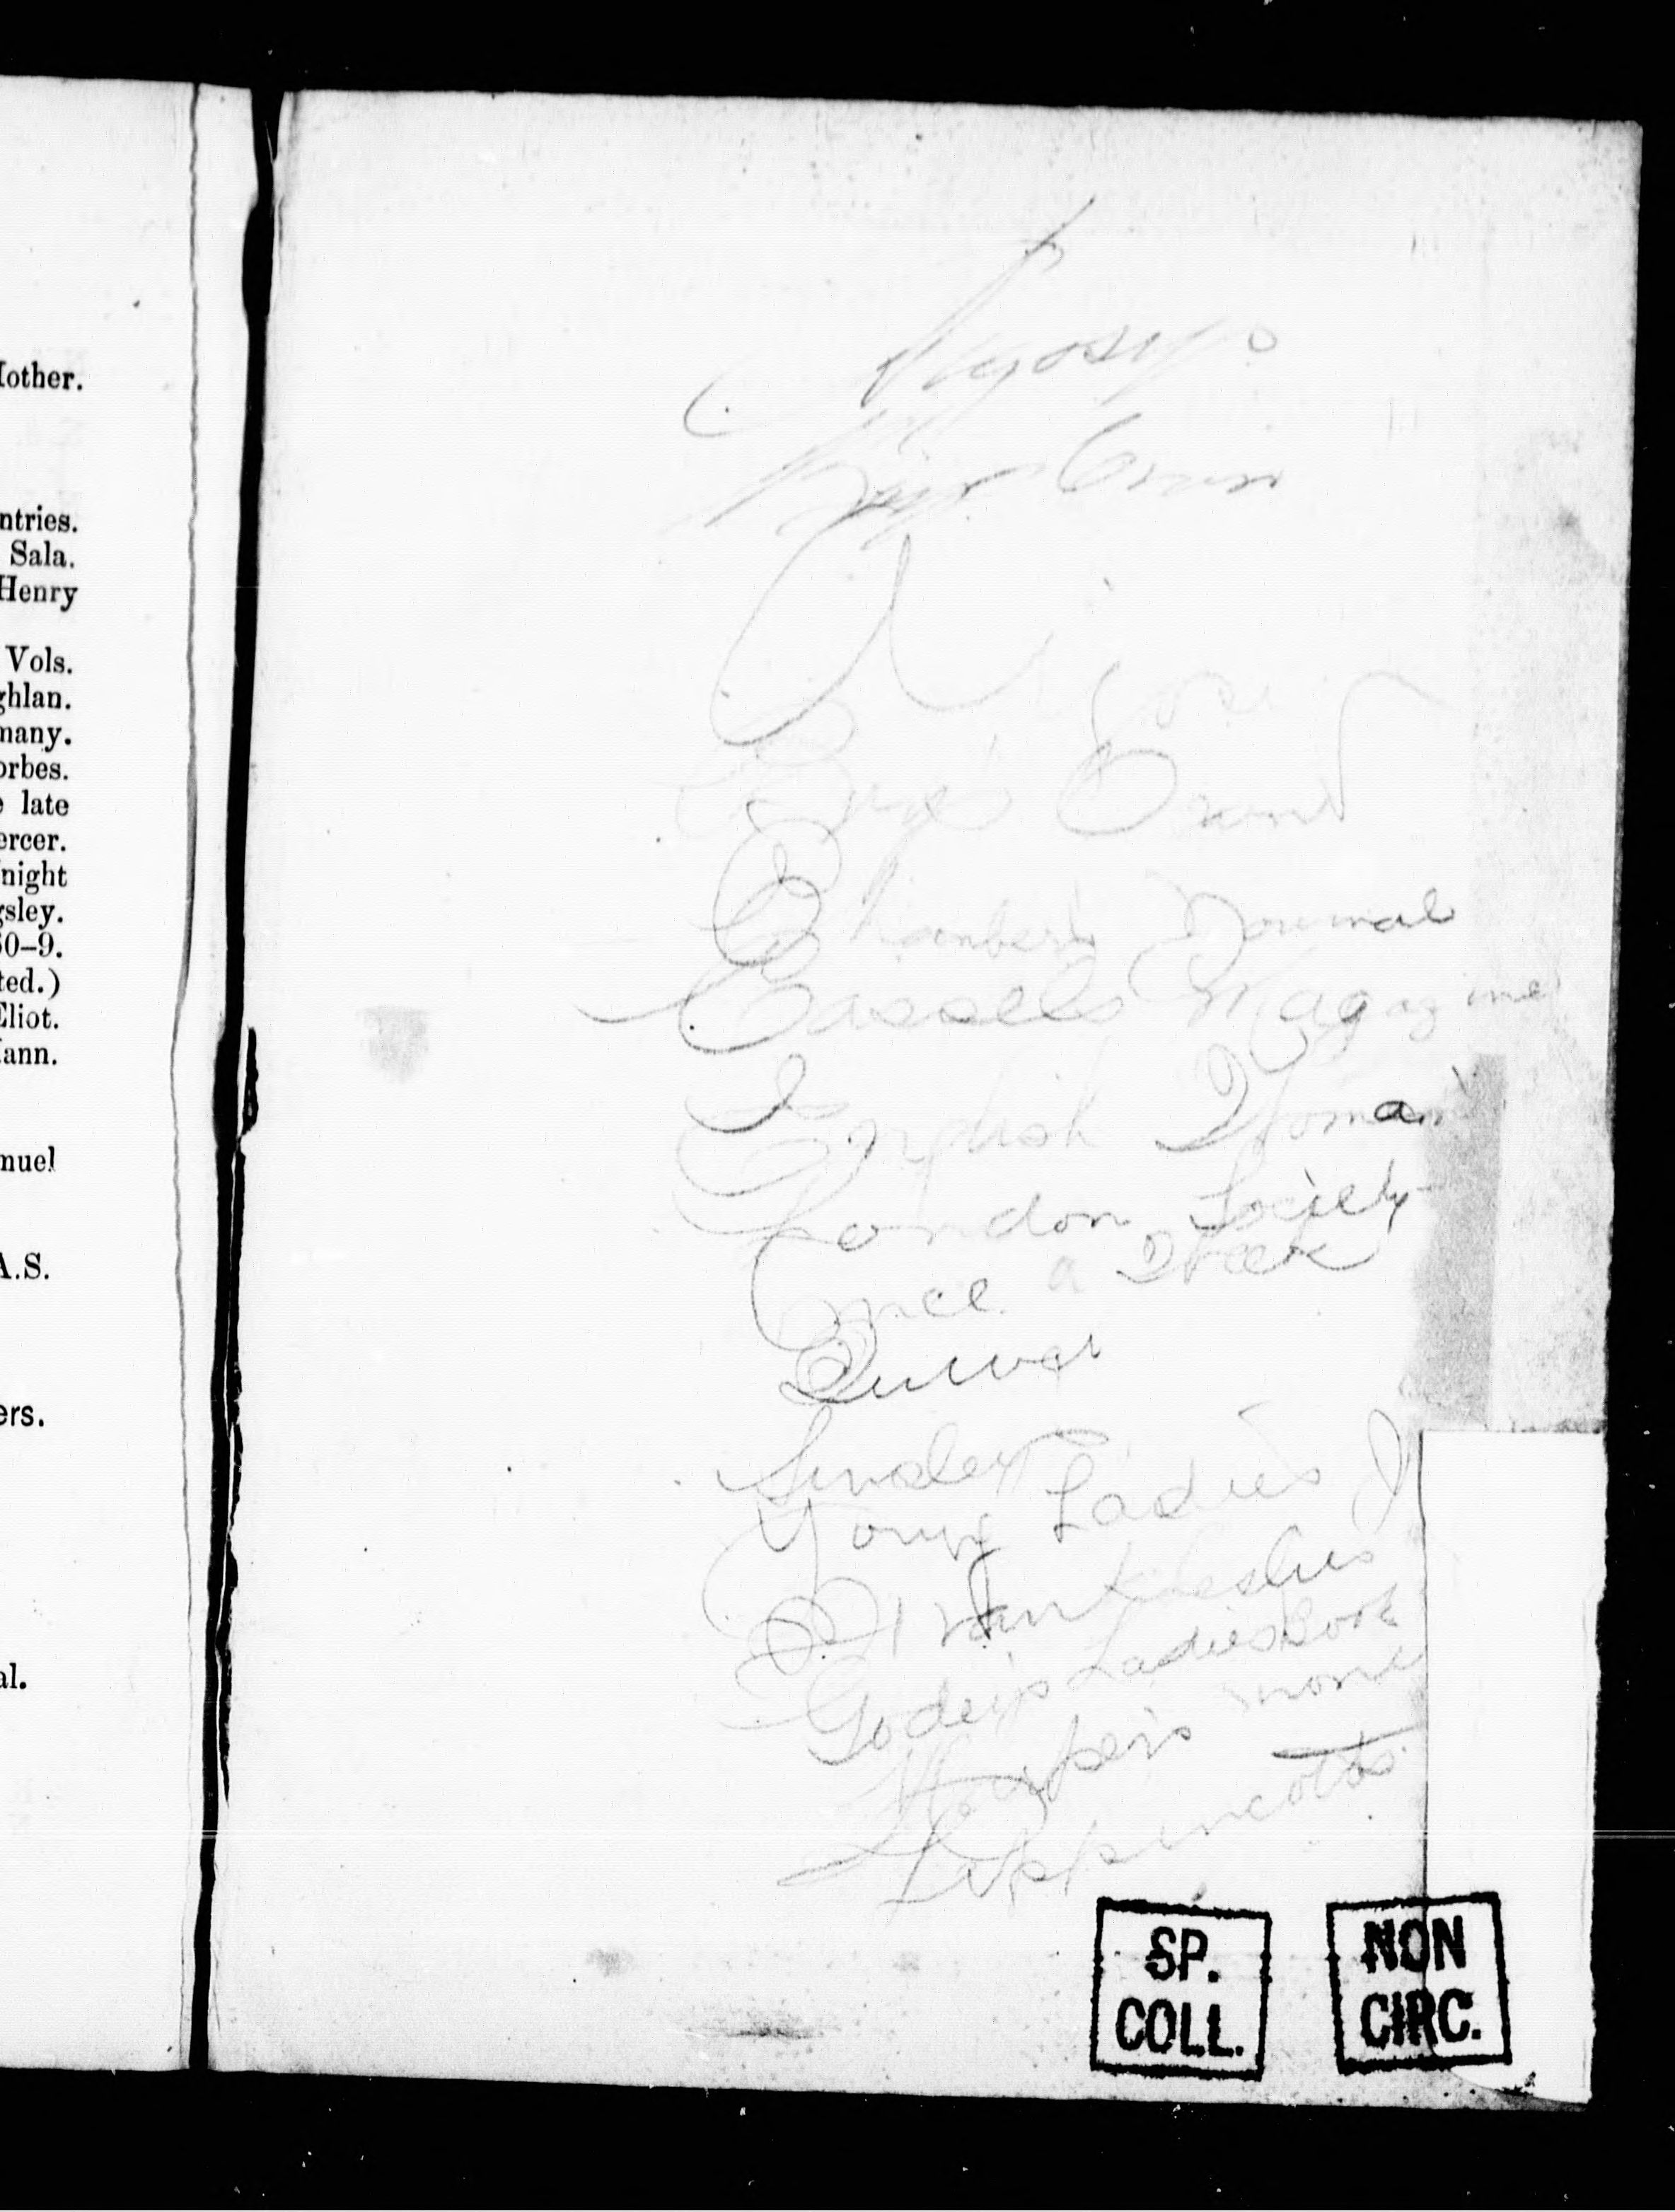 Mother.
ntries.
Sala.
Henry
Vols.
ghlan.
many.
orbes.
late
ercer.
night
gsley.
60–9.
ted.)
Eliot.
ann.
muel
A.S.
ers.
al.
Argosy
Boys Own
Argosy
Boys Own
Chambers Journal
Cassells Magazine
English Woman
London Society
Once a Week
Quiver
Sunday
Young Ladies J
Frank Leslies
Godeys Ladies Book
Harpers mon
Lippincotts
SP.
COLL.
NON
CIRC.